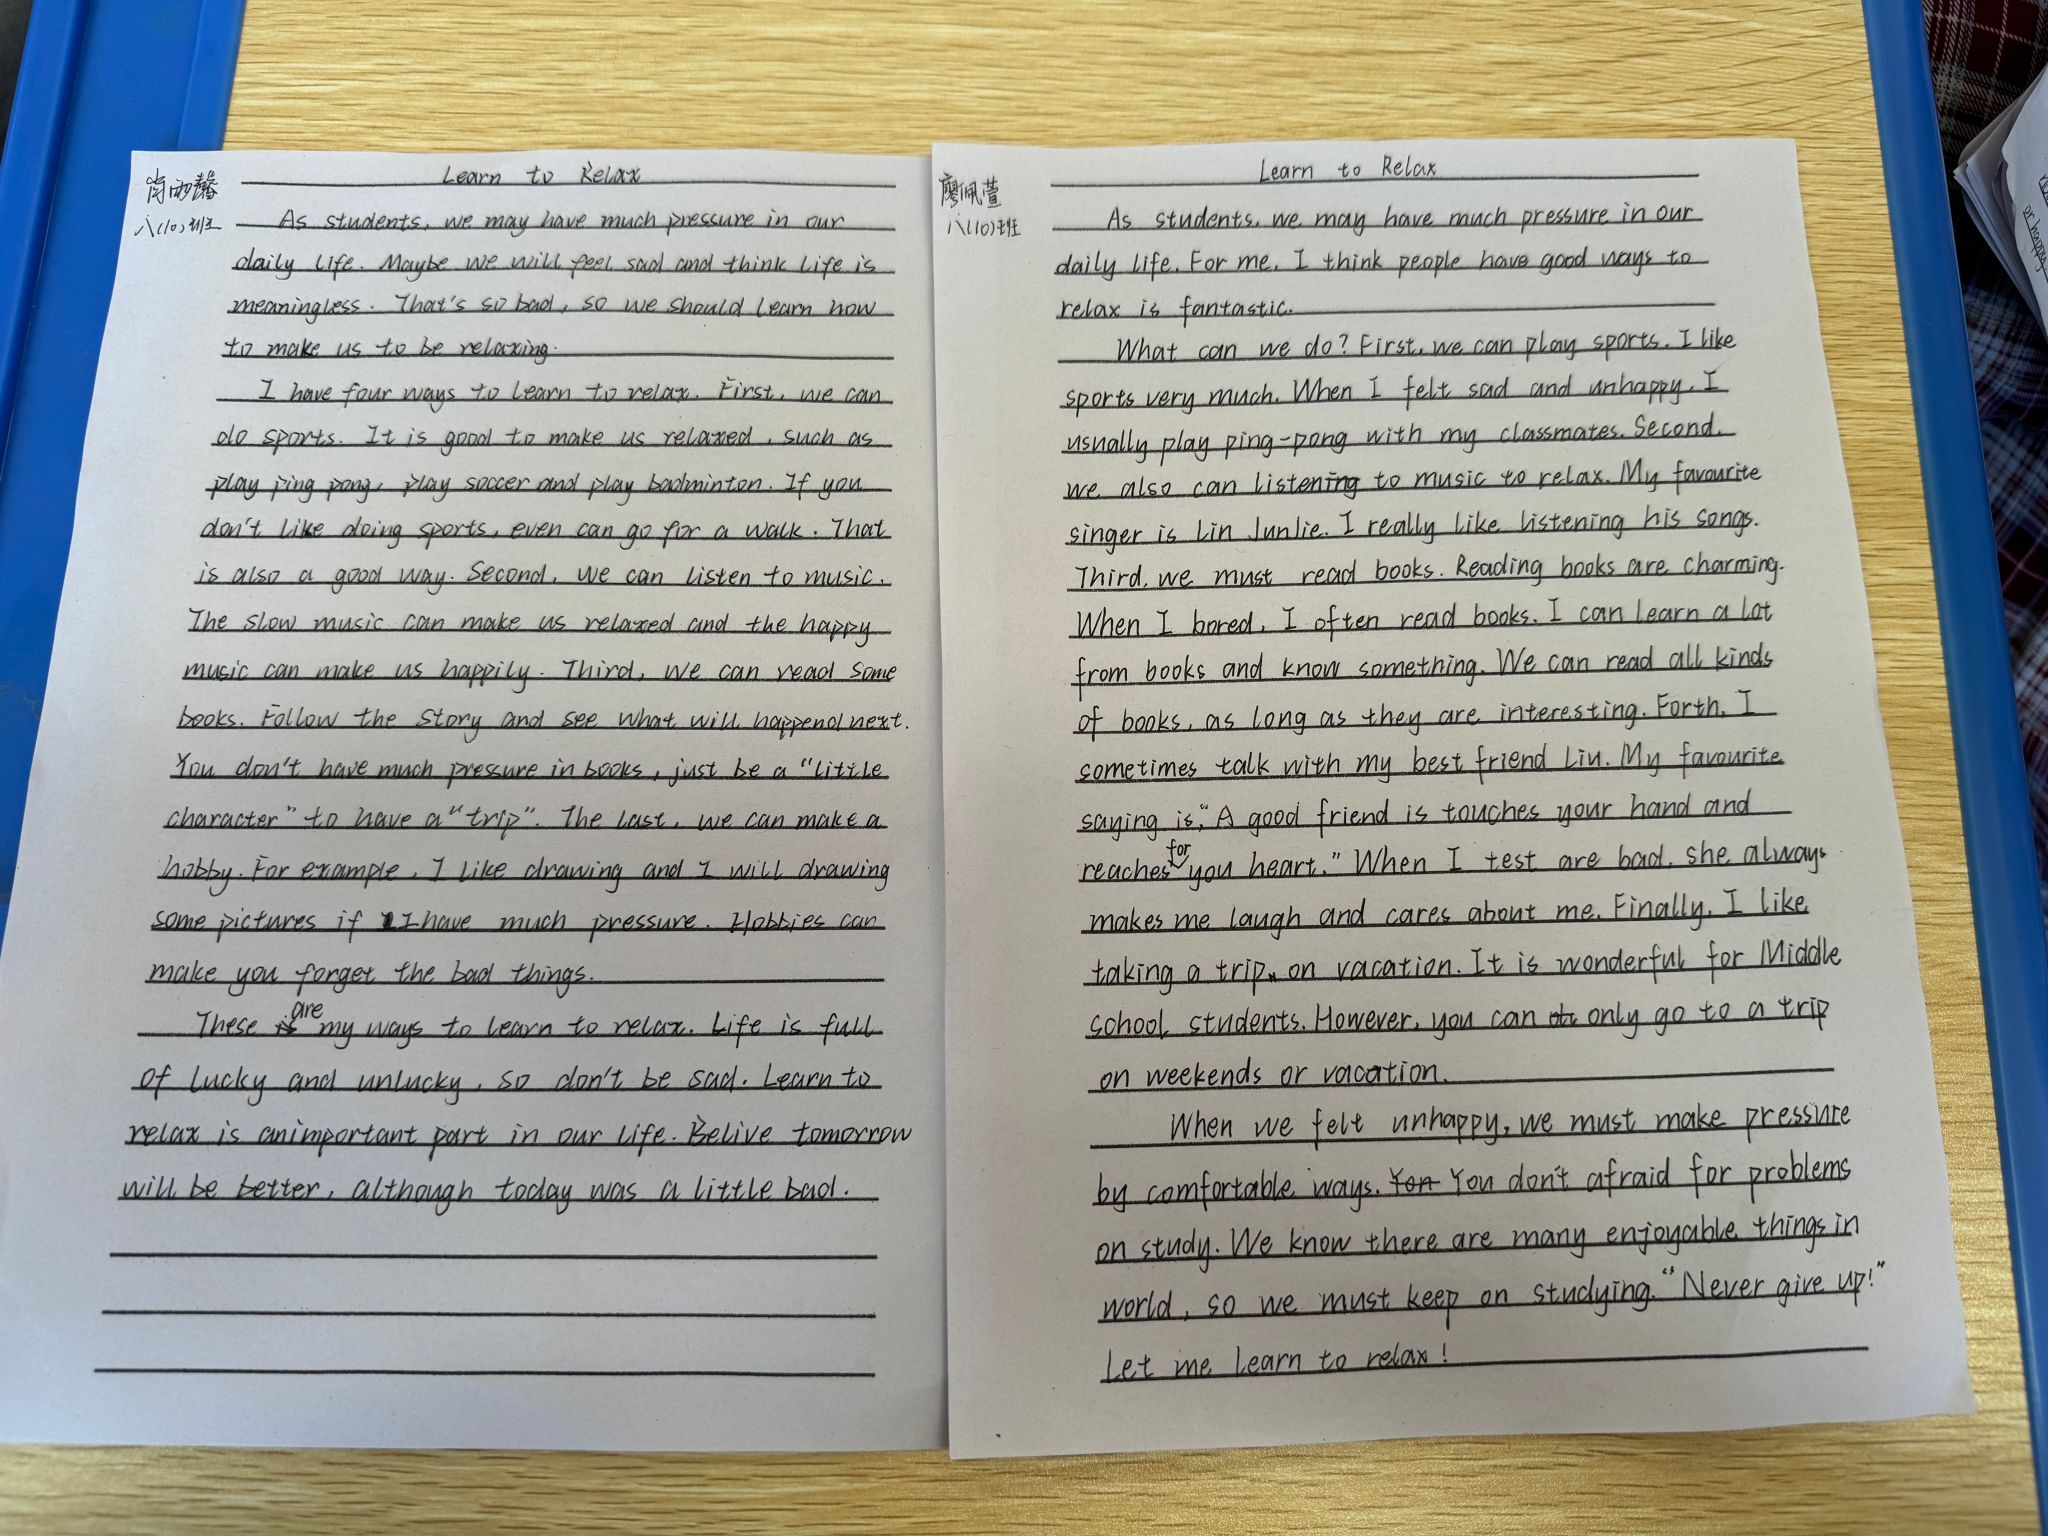 Learn to Relax
雨馨
八(10)班
As students, we may have much pressure in our
daily life. Maybe we will feel sad and think life is
meaningless. That's so bad, so we should learn how
to make us to be relaxing.
I have four ways to learn to relax. First, we can
do sports. It is good to make us relaxed, such as
play ping pong, play soccer and play badminton. If you
don't like doing sports, even can go for a walk. That
is also a good way. Second, we can listen to music.
The slow music can make us relaxed and the happy
music can make us happily. Third, we can read some
books. Follow the story and see what will happend next.
You don't have much pressure in books, just be a "little
character" to have a "trip". The last, we can make a
hobby. For example, I like drawing and I will drawing
some pictures if I have much pressure. Hobbies can
make you forget the bad things.
These are my ways to learn to relax. Life is full
of lucky and unlucky, so don't be sad. Learn to
relax is an important part in our life. Belive tomorrow
will be better, although today was a little bad.
Learn to Relax
廖佩萱
八(10)班
As students, we may have much pressure in our
daily life. For me, I think people have good ways to
relax is fantastic.
What can we do? First, we can play sports. I like
sports very much. When I felt sad and unhappy, I
usually play ping-pong with my classmates. Second,
we also can listening to music to relax. My favourite
singer is Lin Junlie. I really like listening his songs.
Third, we must read books. Reading books are charming.
When I bored, I often read books. I can learn a lot
from books and know something. We can read all kinds
of books, as long as they are interesting. Forth, I
sometimes talk with my best friend Liu. My favourite
saying is, "A good friend is touches your hand and
reaches for you heart." When I test are bad, she always
makes me laugh and cares about me. Finally, I like
taking a trip on vacation. It is wonderful for Middle
school students. However, you can only go to a trip
on weekends or vacation.
When we felt unhappy, we must make pressure
by comfortable ways. You don't afraid for problems
on study. We know there are many enjoyable things in
world, so we must keep on studying. "Never give up!"
Let me learn to relax!